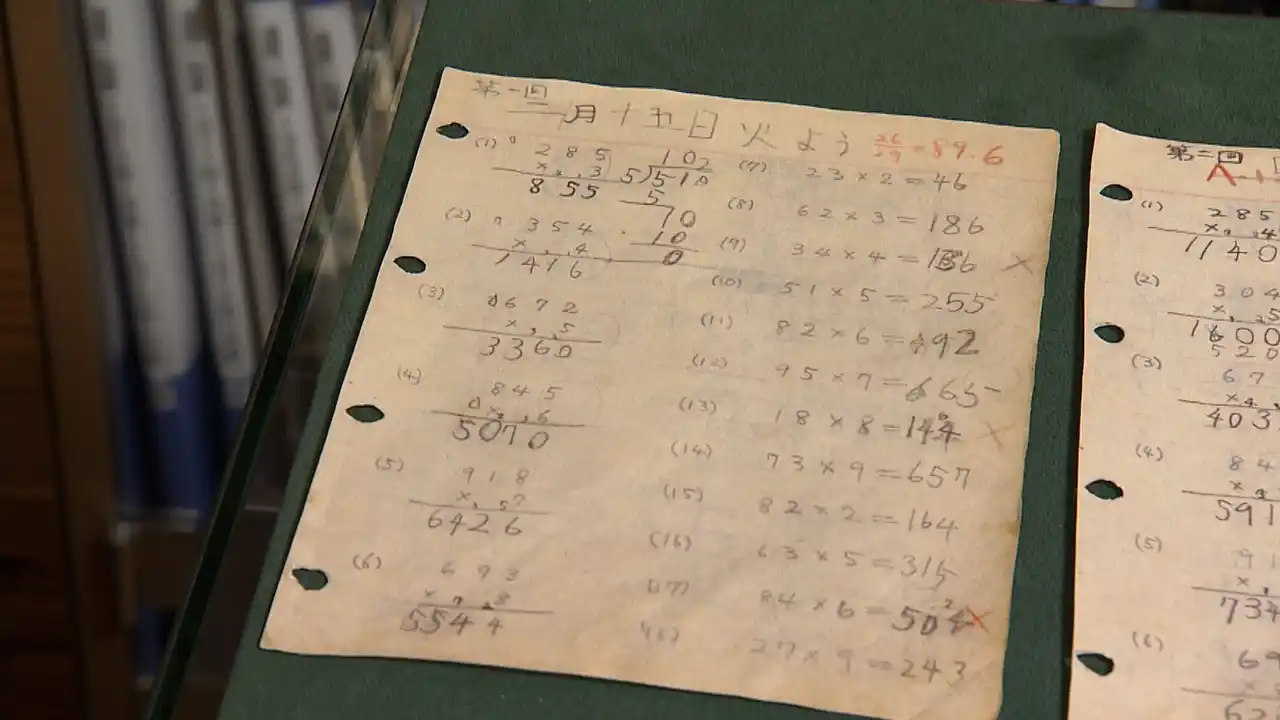 第一回
二月十五日 火 よう 26/29=89.6
(1) 285
×3
855
5)510
102
5
10
10
0
(2) 354
×4
1416
(3) 672
×5
3360
(4) 845
×6
5070
(5) 918
×7
6426
(6) 693
×8
5544
(7) 23×2=46
(8) 62×3=186
(9) 34×4=136 ×
(10) 51×5=255
(11) 82×6=492
(12) 95×7=665
(13) 18×8=144 ×
(14) 73×9=657
(15) 82×2=164
(16) 63×5=315
(17) 84×6=504 ×
(18) 27×9=243
第二回
(1) 285
×4
1140
(2) 304
(3) 67
403
(4) 84
591
(5) 91
734
(6) 69